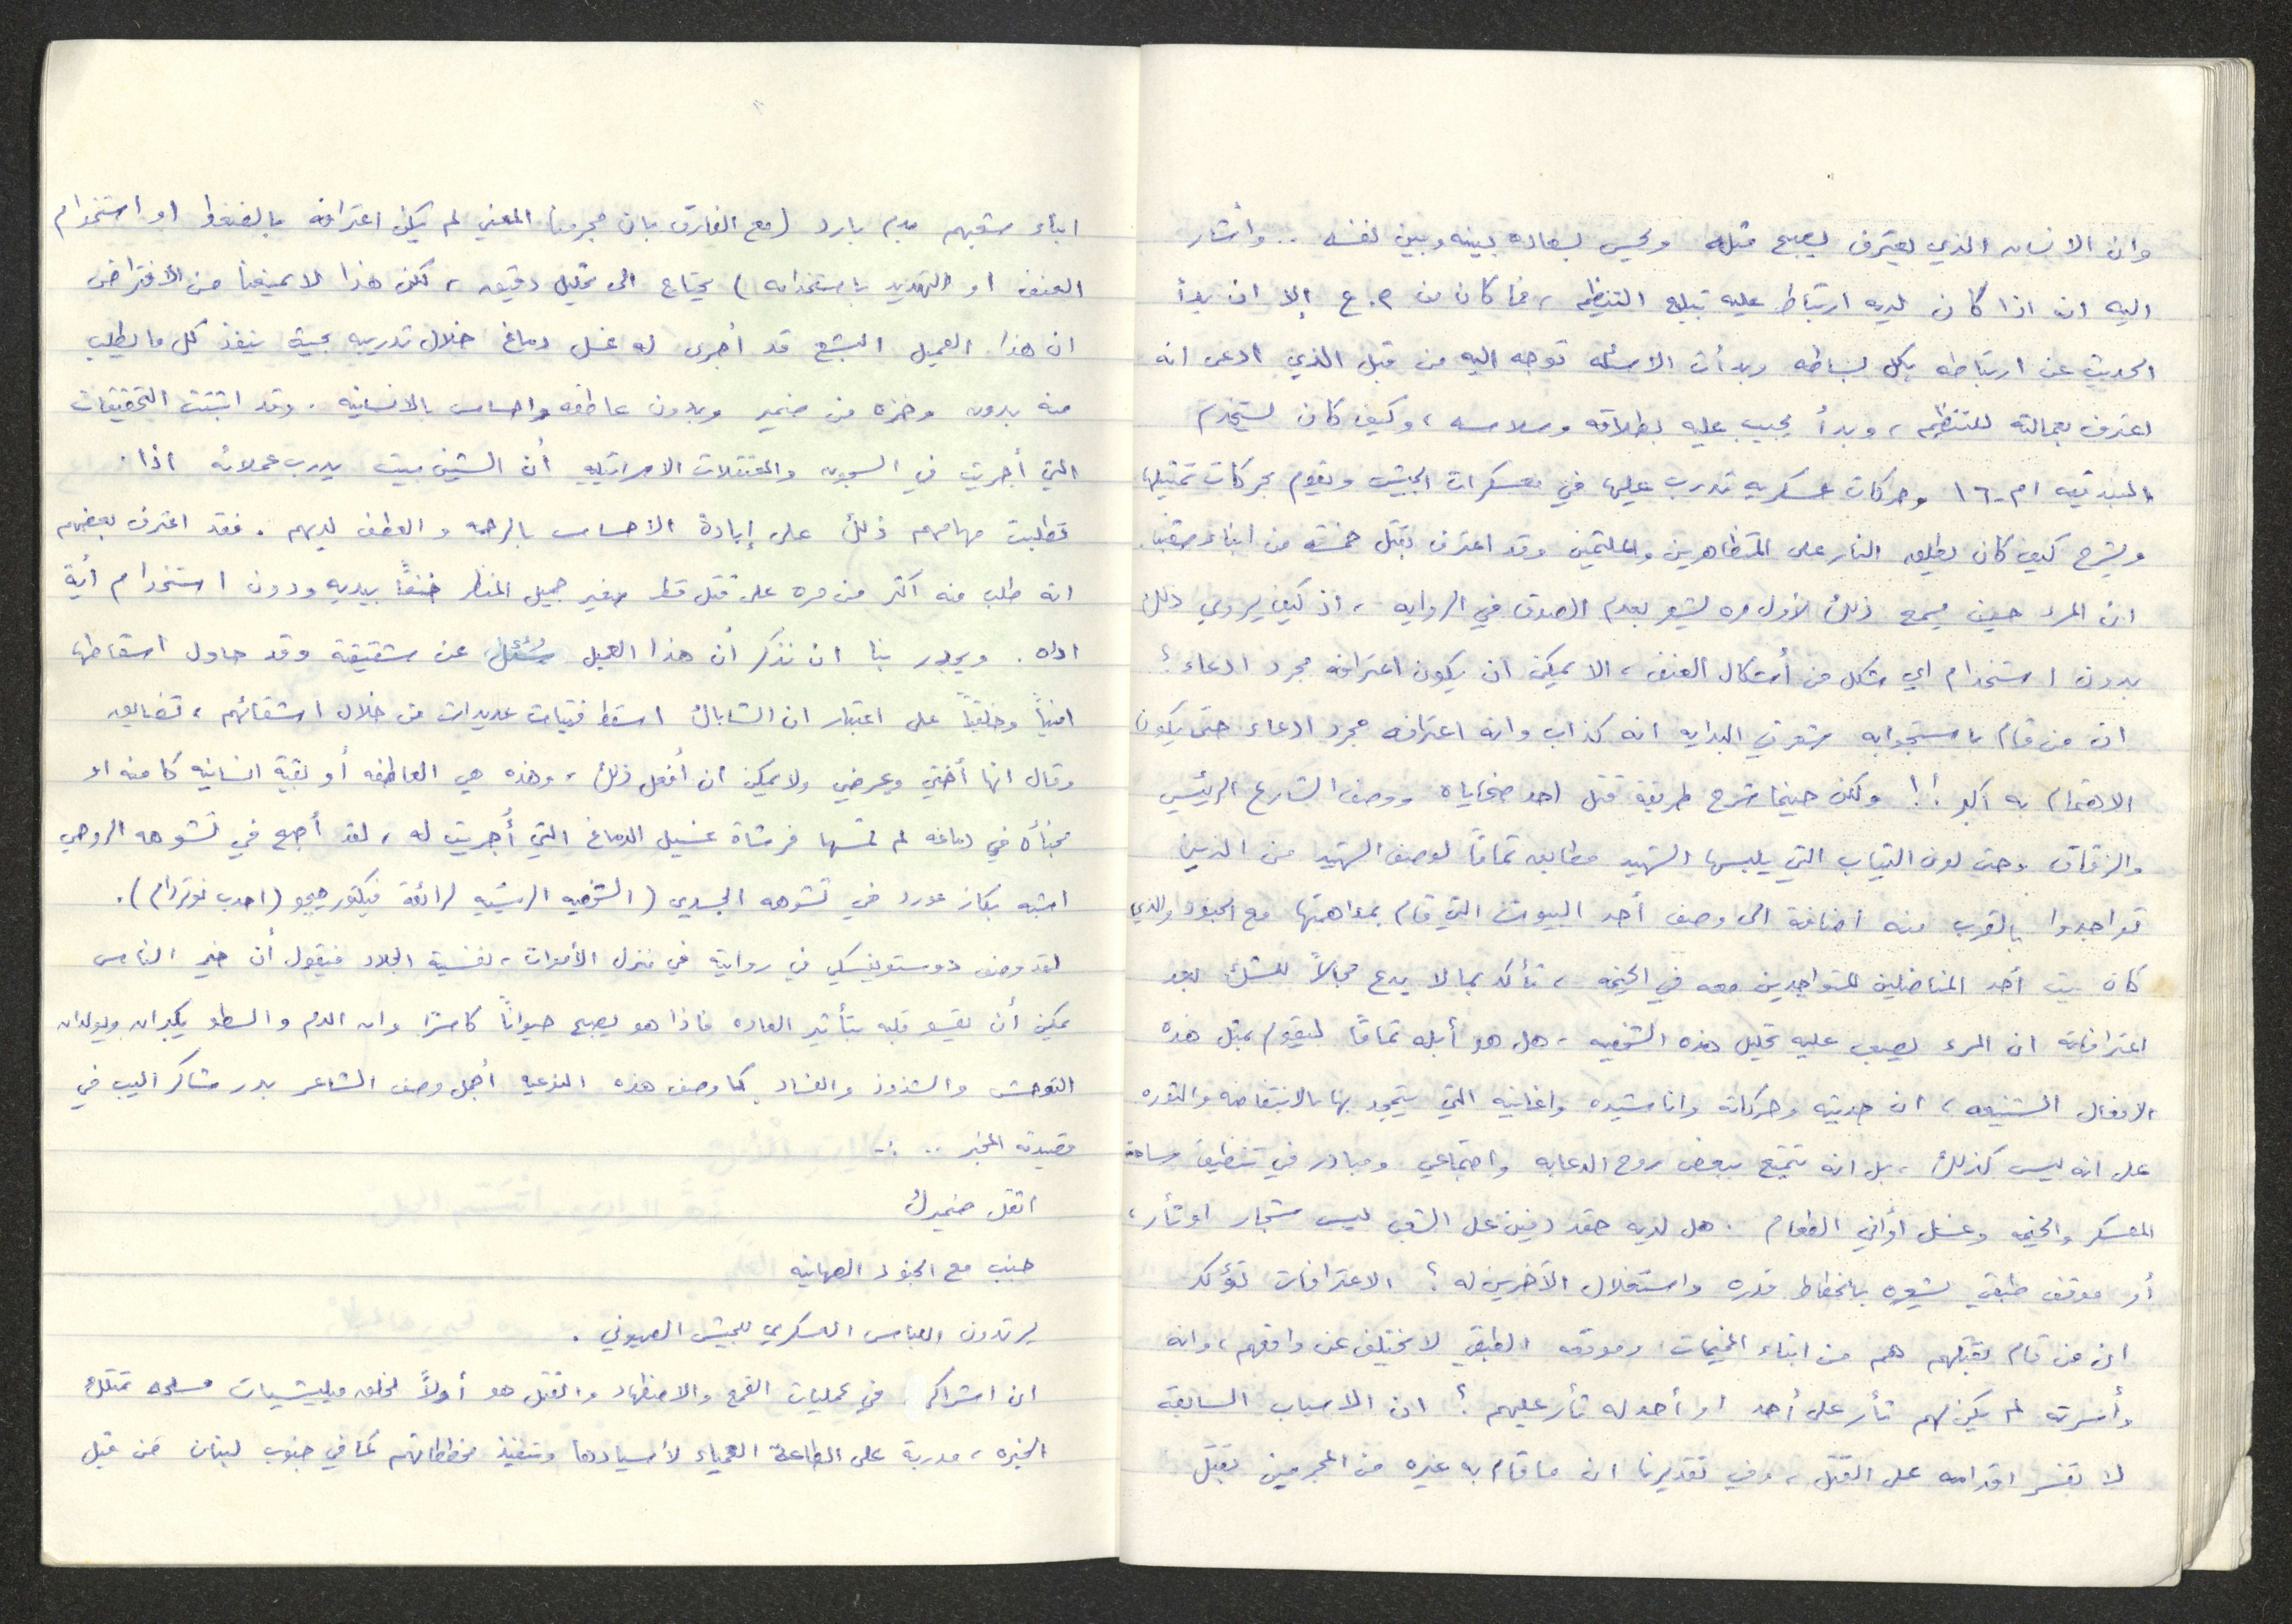 وان الانسان الذي يعترف يصبح مثله ويحس بسعاده بينه وبين نفسه .. وأشار
اليه ان اذا كان لديه ارتباط عليه تبليغ التنظيم ، فما كان من م.ع إلا ان بدأ
الحديث عن ارتباطه بكل بساطه وبدأت الاسئله توجه اليه من قبل الذي ادعى انه
اعترف بعمالته للتنظيم ، وبدأ يجيب عليه بطلاقه وسلاسه ، وكيف كان يستخدم
البندقيه ام-١٦ وحركات عسكريه تدرب عليها في معسكرات الجيش ويقوم بحركات تمثيلها
ويشرح كيف كان يطلق النار على المتظاهرين والملثمين وقد اعترف بقتل خمسة من ابناء شعبنا.
ان المرء حين يسمع ذلك لأول مره يشعر بعدم الصدق في الروايه ، اذ كيف يروي ذلك
بدون استخدام اي شكل من أشكال العنف ، الا يمكن ان يكون اعترافه مجرد ادعاء ؟
ان من قام باستجوابه شعر في البدايه انه كذاب وانه اعترافه مجرد ادعاء حتى يكون
الاهتمام به أكبر !! ولكن حينما شرح طريقة قتل احد ضحاياه ووصف الشارع الرئيسي
والزقاق وحتى لون الثياب التي يلبسها الشهيد مطابق تماماً لوصف الشهيد من الذين
تواجدوا بالقرب منه اضافة الى وصف أحد البيوت التي قام بمداهمتها مع الجنود والذي
كان بيت أحد المناضلين المتواجدين معه في الخيمه ، تأكد بما لا يدع مجالاً للشك بعد
اعترافاته ان المرء يصعب عليه تحليل هذه الشخصيه ، هل هو أبله تماماً ليقوم بمثل هذه
الافعال الشنيعه ، ان حديثه وحركاته واناشيده واغانيه التي يتمجد بها بالانتفاضه والثوره
على انه ليس كذلك ، بل انه يتمتع ببعض روح الدعابه واجتماعي ومبادر في تنظيف ساحة
المعسكر والخيمه وغسل أواني الطعام . هل لديه حقد دفين على الشعب ليس شجار او ثأر ،
أو موقف طبقي يشعره بانحطاط قدره واستغلال الآخرين له ؟ الاعترافات تؤكد
ان من قام بقتلهم هم من ابناء المخيمات وموقعه الطبقي لا يختلف عن واقعهم ، وانه
وأسرته لم يكن لهم ثأر على أحد او أحد له ثأر عليهم ؟ ان الاسباب السابقة
لا تفسر اقدامه على القتل ، وفي تقديرنا ان ما قام به غيره من المجرمين بقتل
ابناء شعبهم بدم بارد (مع الفارق بان مجرمنا المعني لم يكن اعترافه بالضغط او استخدام
العنف او التهديد باستخدامه) يحتاج الى تحليل دقيق ، لكن هذا لا يعفينا من الأفتراض
ان هذا العميل البشع قد أجرى له غسل دماغ خلال تدريبه بحيث ينفذ كل ما يطلب
منه بدون وخزه من ضمير وبدون عاطفه واحساس بالانسانيه . وقد اثبتت التحقيقات
التي أجريت في السجون والمعتقلات الاسرائيليه أن الشين بيت يدرب عملائه اذا
تطلبت مهامهم ذلك على إبادة الاحساس بالرحمه والعطف لديهم . فقد اعترف بعضهم
انه طلب منه اكثر من مره على قتل قط صغير جميل المنظر خنقاً بيديه ودون استخدام أية
اداه . ويجدر بنا ان نذكر أن هذا العميل سُئل عن شقيقة وقد حاول اسقاطها
امنياً وخلقياً على اعتبار ان الشاباك اسقط فتيات عديدات من خلال اشقائهم ، تضايق
وقال انها أختي وعرضي ولا يمكن ان أفعل ذلك ، وهذه هي العاطفه أو بقية انسانيه كامنه او
مخبأة في دماغه لم تمسها فرشاة غسيل الدماغ التي أُجريت له ، لقد أصبح في تشوهه الروحي
اشبه بكازمودو في تشوهه الجسدي (الشخصيه الرئيسيه لرائعة فيكتور هيجو (احدب نوتردام).
لقد وصف دوستويفسكي في روايتة في منزل الأموات ، نفسية الجلاد فيقول أن خير الناس
يمكن أن يقسو قلبه بتأثير العاده فاذا هو يصبح حيواناً كاسراً وان الدم والسطو يكبران ويولدان
التوحش والشذوذ والفساد كما وصف هذه النوعيه أجمل وصف الشاعر بدر شاكر السيب في
قصيدته المخبر .. :-
اثقل ضميرك
جنب مع الجنود الصهاينه
يرتدون اللباس العسكري للجيش الصهيوني .
ان اشراكهم في عمليات القمع والاضطهاد والقتل هو أولاً لخلق ميليشيات مسلحه تمتلك
الخبره ، مدربة على الطاعة العمياء لأسيادها وتنفيذ مخططاتهم كما في جنوب لبنان من قبل